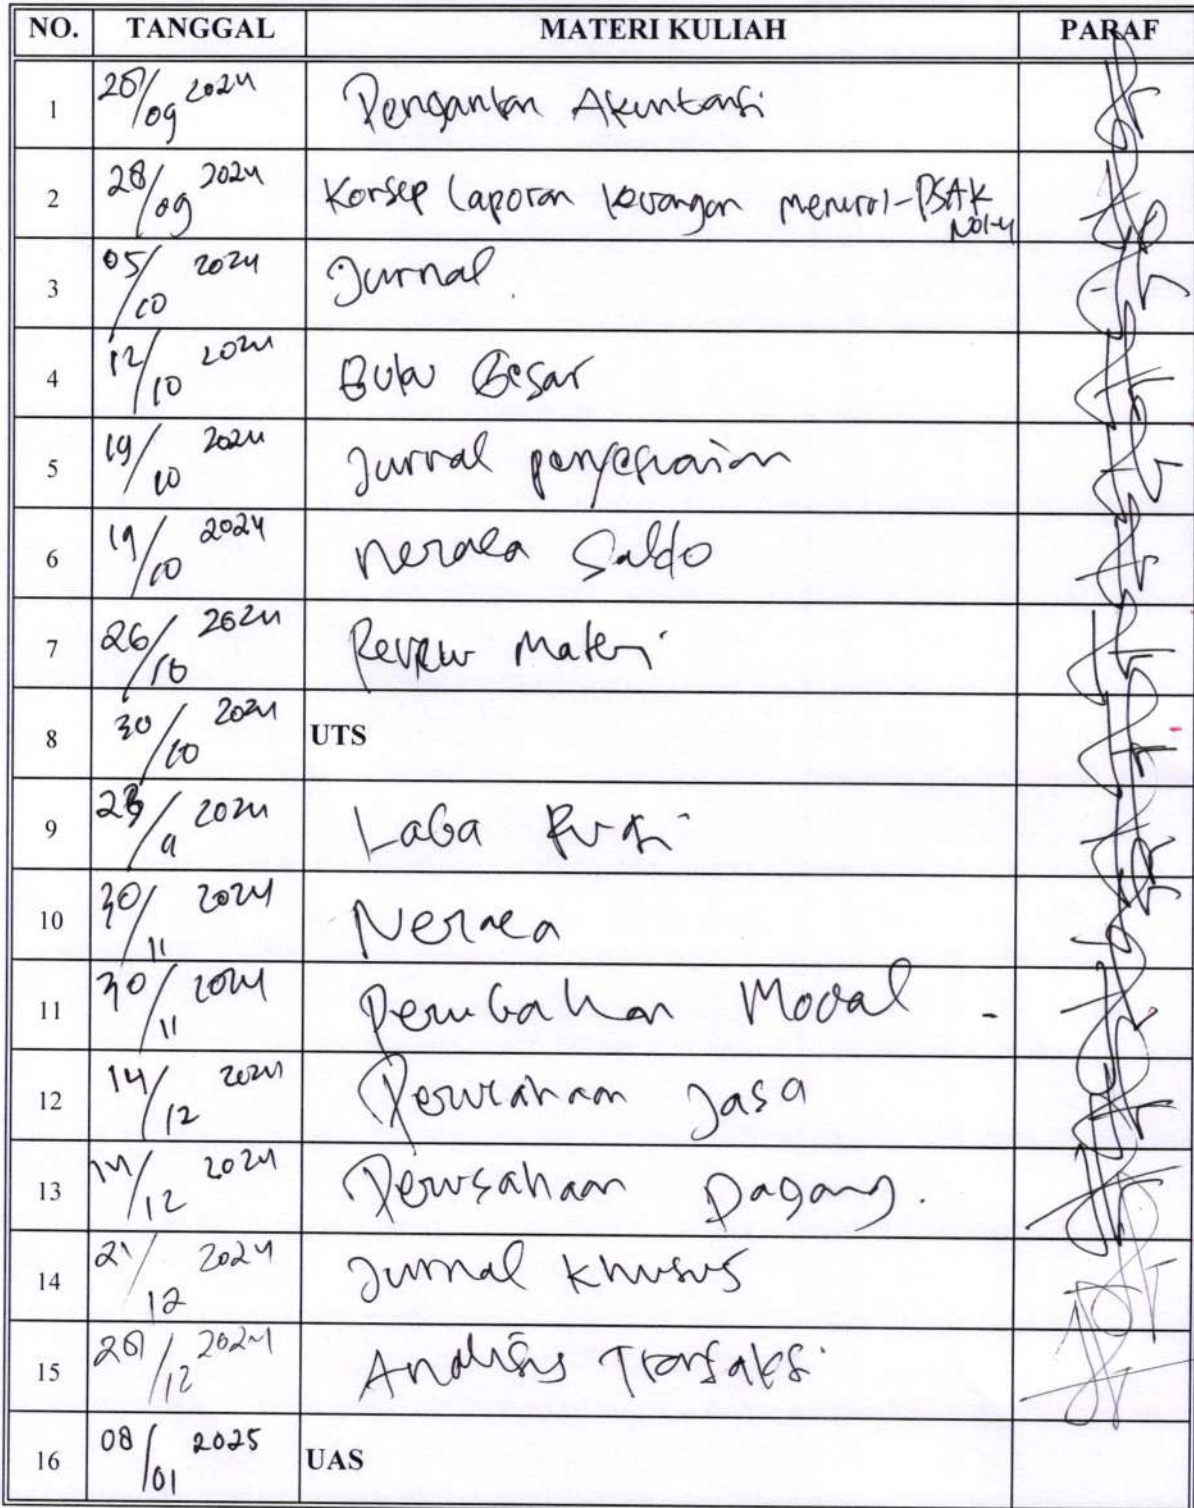 NO. TANGGAL MATERI KULIAH PARAF
1 28/09 2024 Pengantar Akuntansi
2 28/09 2024 Konsep Laporan keuangan menurut-PSAK
No1-4
3 05/10 2024 Jurnal
4 12/10 2024 Buku Besar
5 19/10 2024 Jurnal penyesuaian
6 19/10 2024 Neraca Saldo
7 26/10 2024 Review Materi
8 30/10 2024 UTS
9 2024 Laba Rugi
10 30/11 2024 Neraca
11 30/11 2024 Perubahan Modal -
12 14/12 2024 Perusahaan Jasa
13 14/12 2024 Perusahaan Dagang.
14 21/12 2024 Jurnal Khusus
15 28/12 2024 Analisis Transaksi
16 08/01 2025 UAS